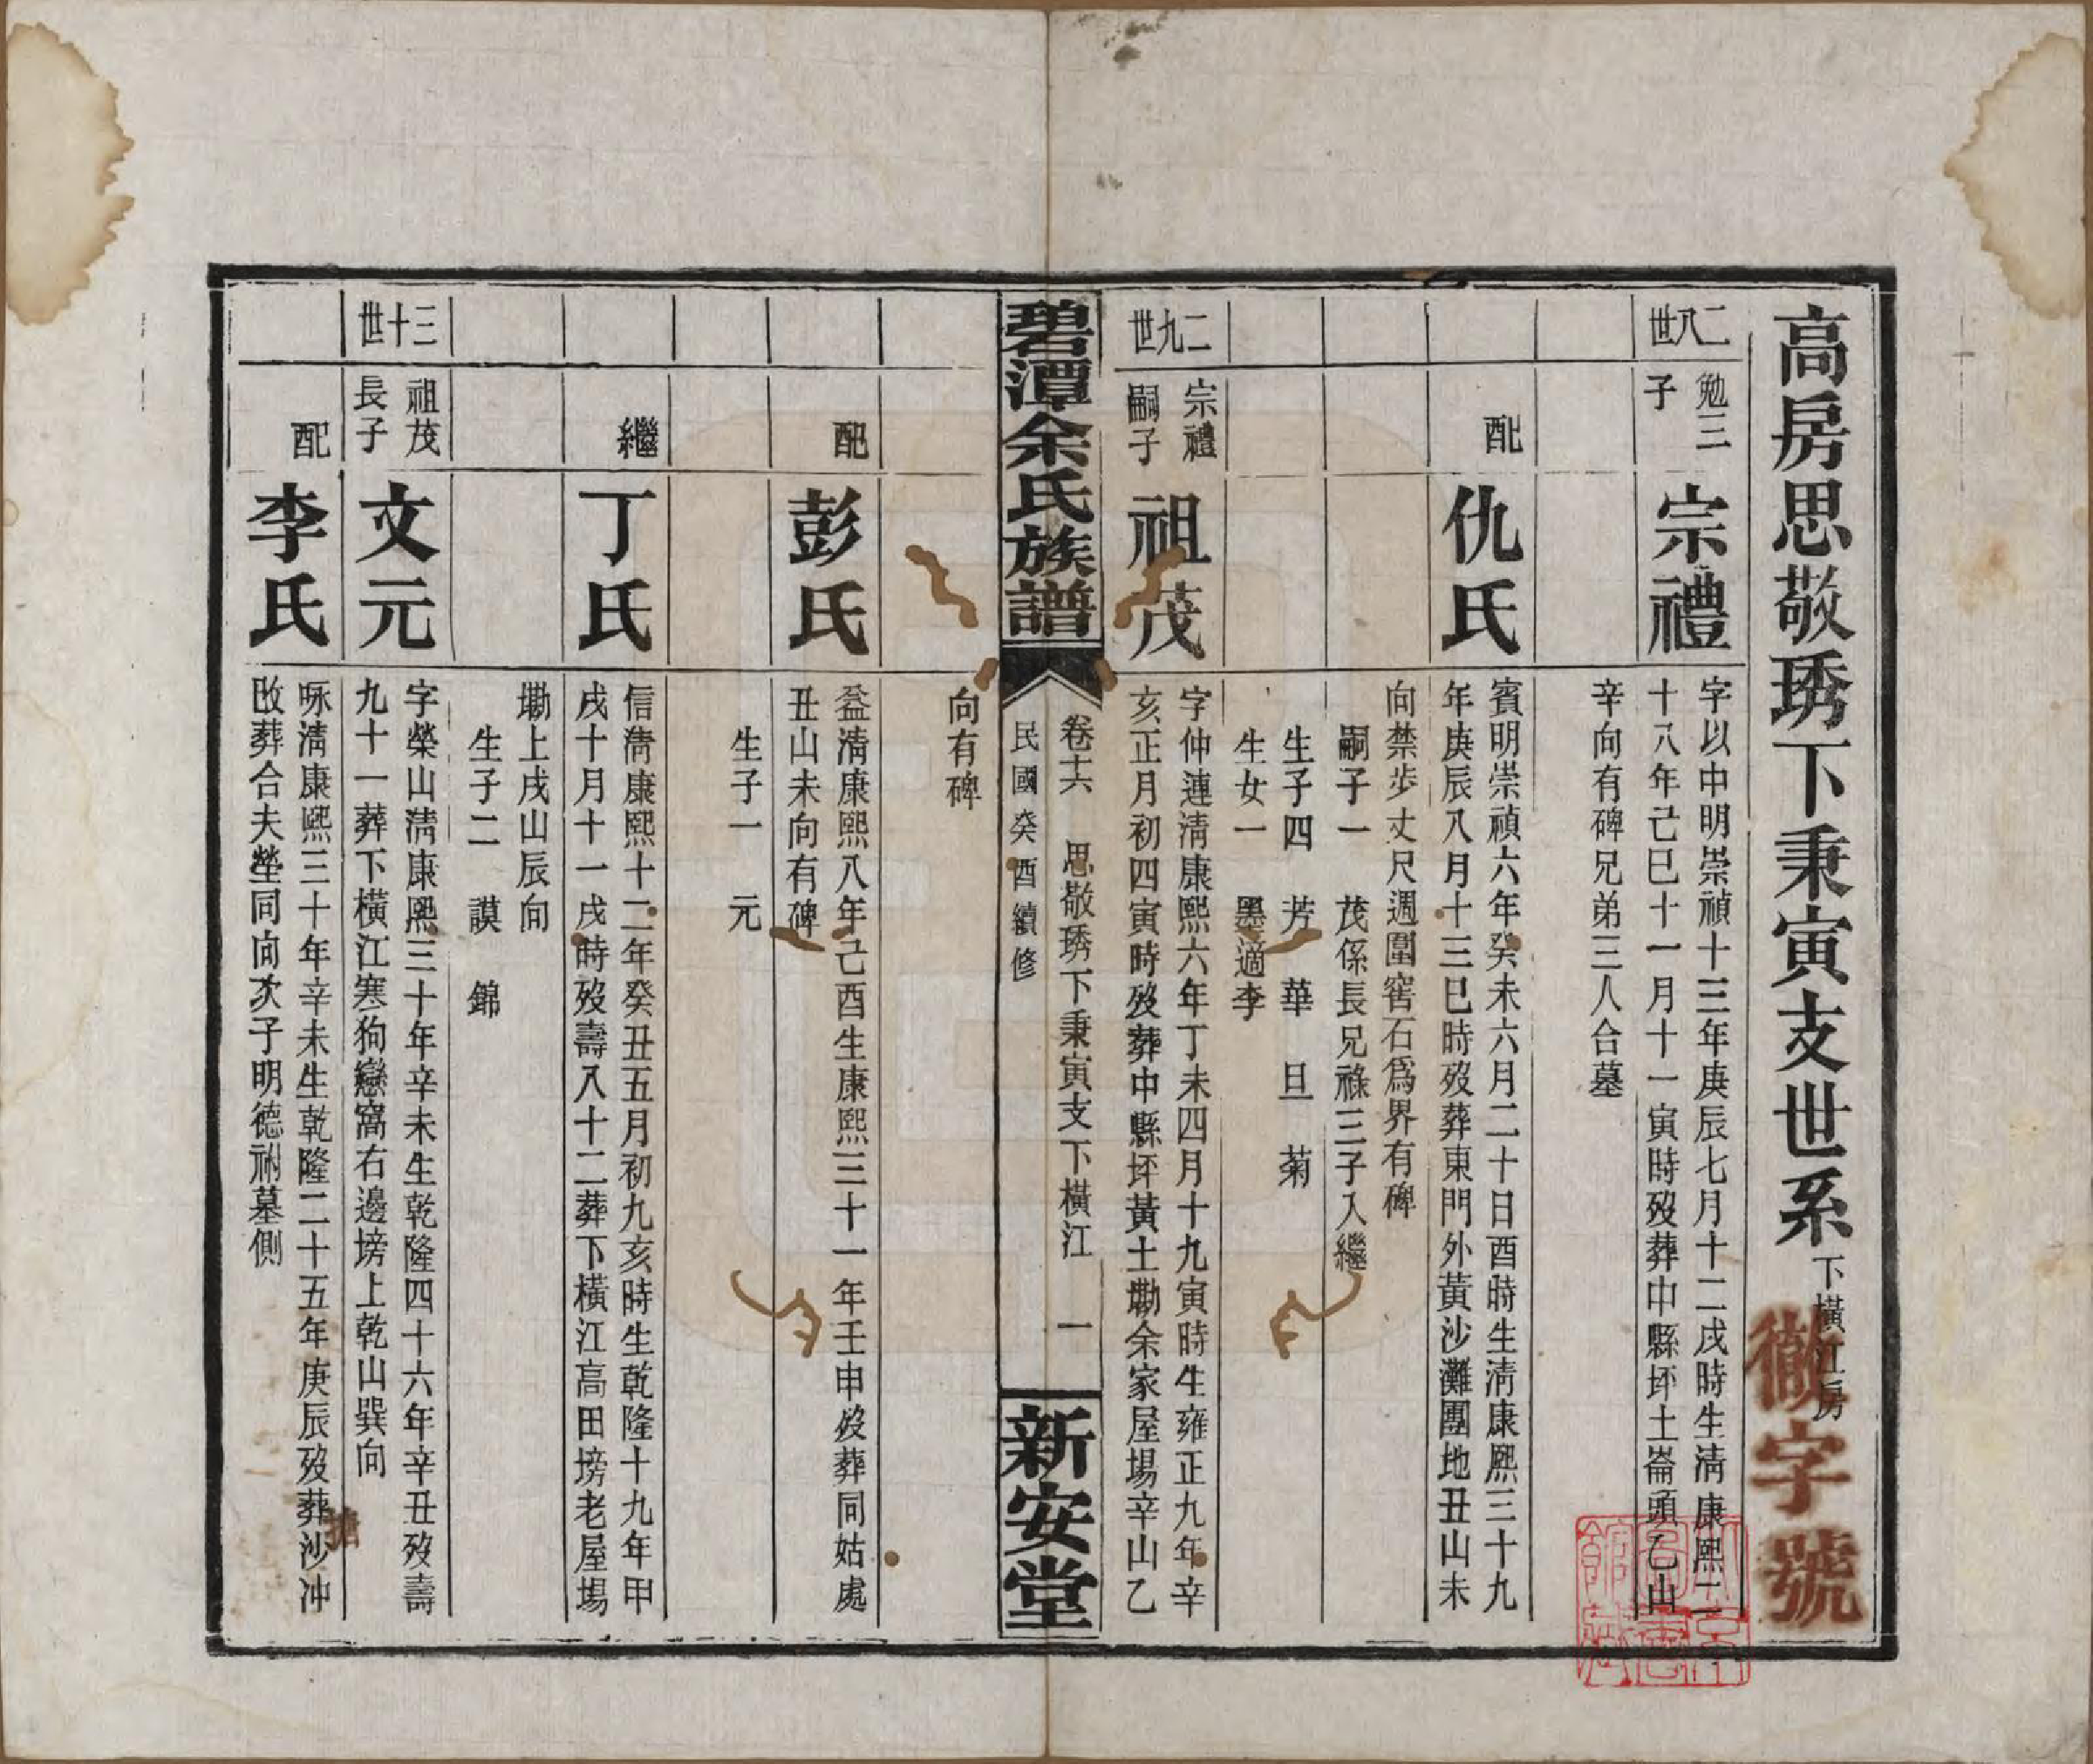 高房思敬琇下秉寅支世系 下橫江房
徽字號
二八世
勉三
子
宗禮
字以中明崇禎十三年庚辰七月十二戌時生清康熙二
十八年己巳十一月十一寅時歿葬中縣坏土崙頭乙山
辛向有碑兄弟三人合墓
配
仇氏
賓明崇禎六年癸未六月二十日酉時生清康熙三十九
年庚辰八月十三巳時歿葬東門外黃沙灘團地丑山未
向禁步丈尺週圍窖石為界有碑
嗣子一 茂係長兄祿三子入繼
生子四 芳 華 旦 菊
生女一 墨適李
二九世
宗禮
嗣子
祖茂
字仲連清康熙六年丁未四月十九寅時生雍正九年辛
亥正月初四寅時歿葬中縣坏黃土勘余家屋場辛山乙
碧潭余氏族譜
卷十六 思敬琇下秉寅支下橫江 一
民國癸酉續修
新安堂
向有碑
配
彭氏
益清康熙八年己酉生康熙三十一年壬申歿葬同姑處
丑山未向有碑
生子一 元
繼
丁氏
信清康熙十二年癸丑五月初九亥時生乾隆十九年甲
戌十月十一戌時歿壽八十二葬下橫江高田塝老屋場
勘上戌山辰向
生子二 謨 錦
三十世
祖茂
長子
文元
字榮山清康熙三十年辛未生乾隆四十六年辛丑歿壽
九十一葬下橫江寒狗戀窩右邊塝上乾山巽向
配
李氏
咏清康熙三十年辛未生乾隆二十五年庚辰歿葬沙冲
改葬合夫塋同向次子明德祔墓側